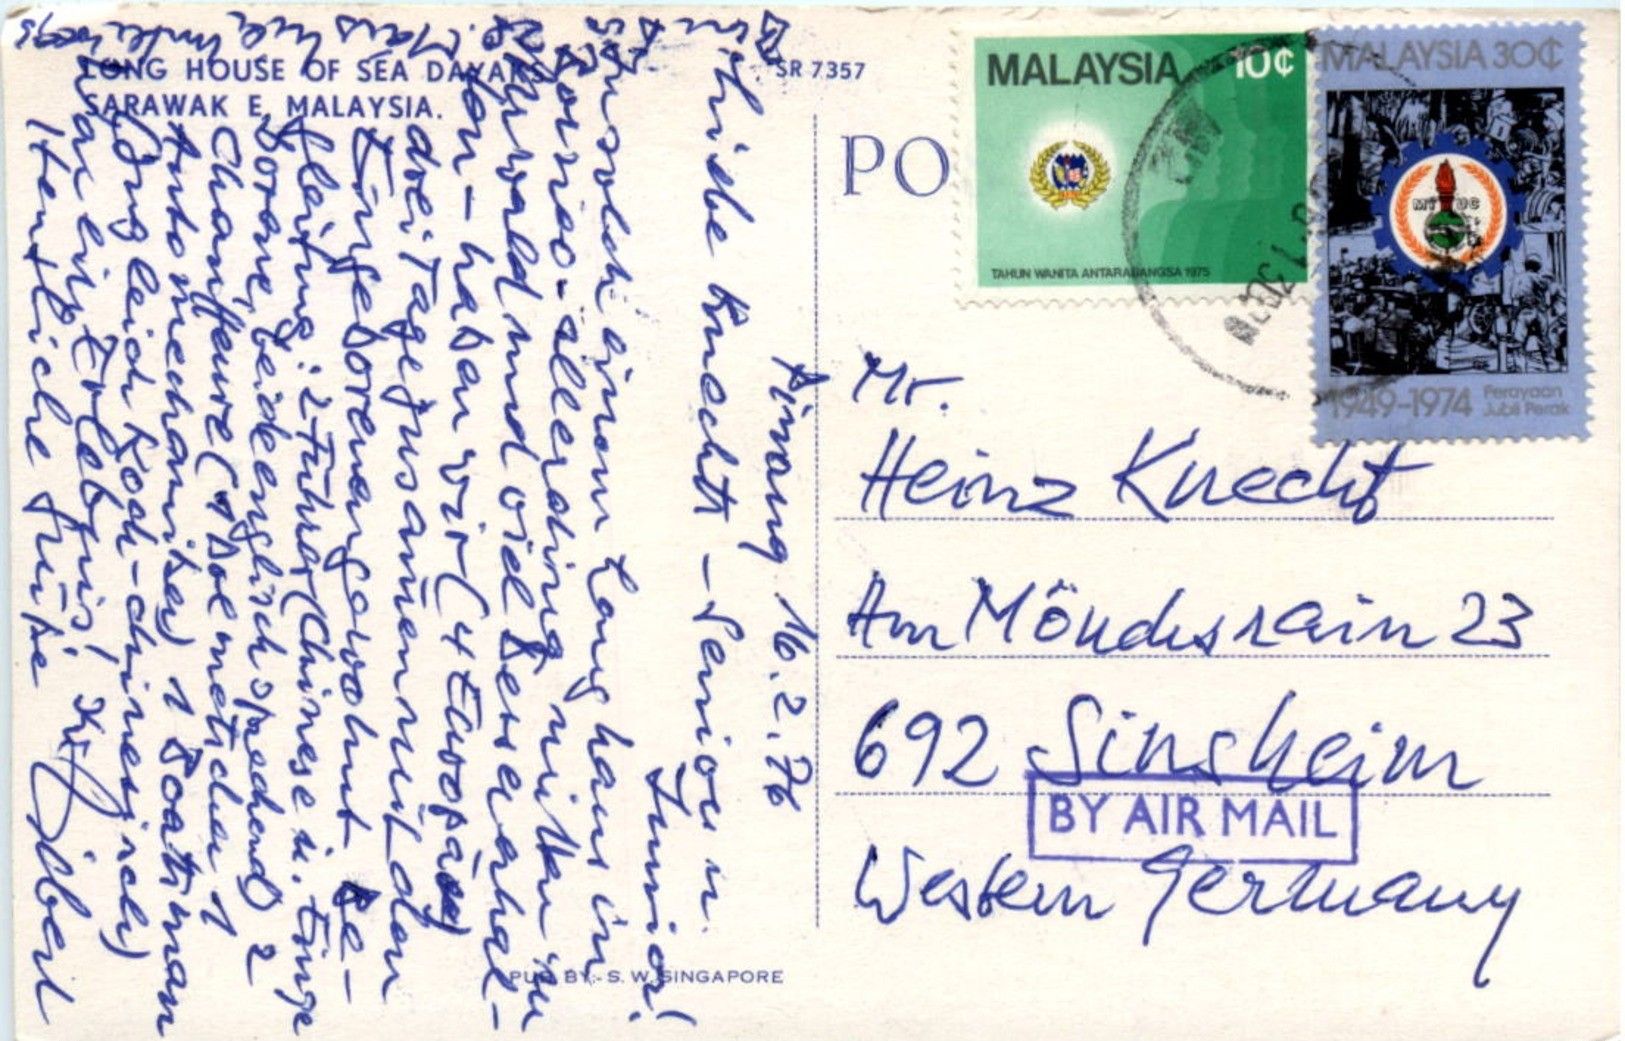 LONG HOUSE OF SEA DAYAKS
SARAWAK E, MALAYSIA.
SR 7357
PO
MALAYSIA 10¢
TAHUN WANITA ANTARABANGSA 1975
MALAYSIA 30¢
1949-1974 Perayaan
Jubli Perak
Pinang 16.2.76
Liebe Knecht – Senior u.
Junior!
solch einem Langhaus in
Borneo – allerdings mitten im
Urwald und viel besser erhal-
ten – haben wir (4 Europäer)
drei Tage zusammen mit den
Eingeborenen gewohnt. Be-
gleitung: 2 Führer (Chinese u. Einge
borene, beide englisch sprechend) 2
Chauffeure (+ Dolmetscher 1
Automechaniker) 1 Boatsman
(zugleich Koch – chinesisch)
War ein Erlebnis!
Herzliche Grüße
28. März hier unterwegs
Mr.
Heinz Knecht
Am Mönchsrain 23
692 Sinsheim
BY AIR MAIL
Western Germany
PUB BY:- S. W. SINGAPORE